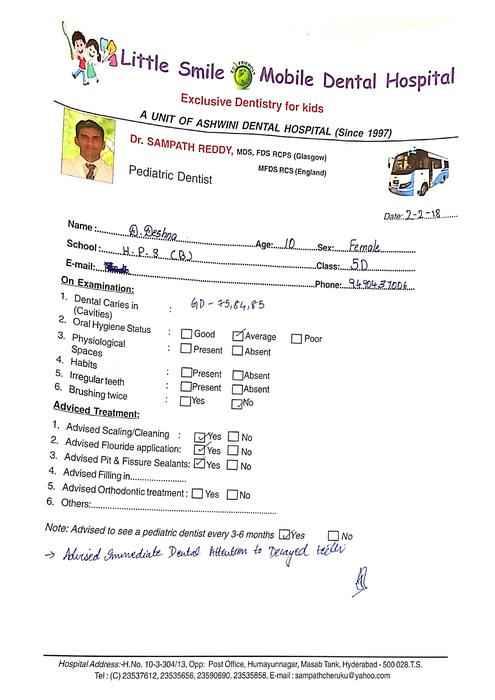 Little Smile Mobile Dental Hospital
Exclusive Dentistry for kids
A UNIT OF ASHWINI DENTAL HOSPITAL (Since 1997)
Dr. SAMPATH REDDY, MDS, FDS RCPS (Glasgow)
MFDS RCS (England)
Pediatric Dentist
Date: 2-2-18
Name: D. Deshna Age: 10 Sex: Female
School: H.P.S (B) Class: 5D
E-mail: Phone: 9490437006
On Examination:
1. Dental Caries in : GD - 75,84,85
(Cavities)
2. Oral Hygiene Status : Good Average Poor
3. Physiological : Present Absent
Spaces
4. Habits : Present Absent
5. Irregular teeth : Present Absent
6. Brushing twice : Yes No
Adviced Treatment:
1. Advised Scaling/Cleaning : Yes No
2. Advised Flouride application: Yes No
3. Advised Pit & Fissure Sealants: Yes No
4. Advised Filling in
5. Advised Orthodontic treatment : Yes No
6. Others:
Note: Advised to see a pediatric dentist every 3-6 months Yes No
→ Advised Immediate Dental Attention to Decayed teeth
Hospital Address:-H.No. 10-3-304/13, Opp: Post Office, Humayunnagar, Masab Tank, Hyderabad - 500 028.T.S.
Tel : (C) 23537612, 23535656, 23590690, 23535858, E-mail : sampathcheruku@yahoo.com